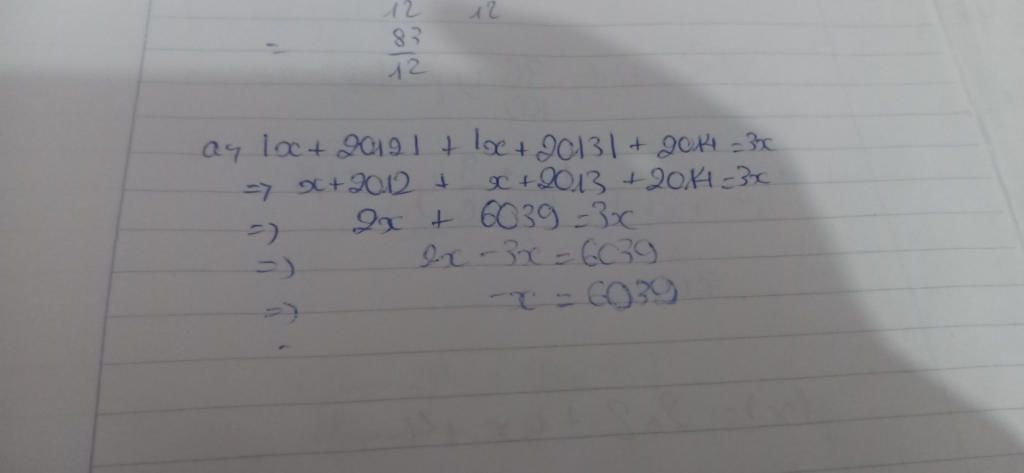 12 12
= 83
12
a, |x + 2012| + |x + 2013| + 2014 = 3x
=> x + 2012 + x + 2013 + 2014 = 3x
=> 2x + 6039 = 3x
=> 2x - 3x = 6039
=> -x = 6039